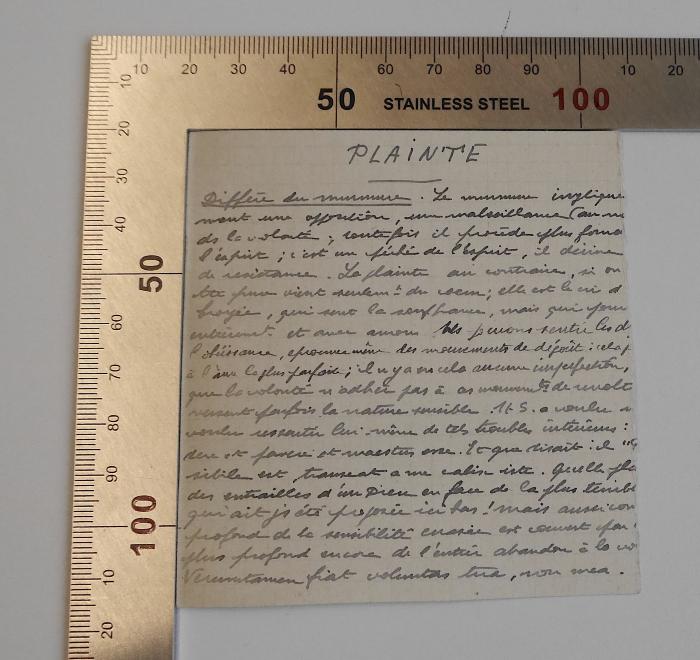 10 20 30 40 50 60 70 80 90 100 10 20
STAINLESS STEEL
10 20 30 40 50 60 70 80 90 100 10 20
PLAINTE
Diffère du murmure. Le murmure implique
nant une opposition, une malveillance (au m
ds la volonté; toutefois il procède plus forme
l'esprit; c'est un péché de l'esprit, il dérive
de résistance. La plainte au contraire, si on
être pure vient seulemt du coeur; elle est le cri d
broyée, qui sent la souffrance, mais qui
entièremt et avec amour. Ns pouvons sentir les d
l'obéissance, éprouver même des mouvements de dégoût: cela
à l'âme la plus parfaite; il n'y a en cela aucune imperfection,
que la volonté n'adhère pas à ces mouvemts de révolt
versent parfois la nature sensible. N.S. a voulu
voulu ressentir lui-même de tels troubles intérieurs:
dere et pavere et maestus esse. Et que disait-il "
sibile est, transeat a me calix iste. Quelle pl
des entrailles d'un Dieu en face de la plus terrible
qui ait js été proposée ici bas! mais aussi
profond de la sensibilité écrasée est couvert par
plus profond encore de l'entier abandon à la vo
Verumtamen fiat voluntas tua, non mea.